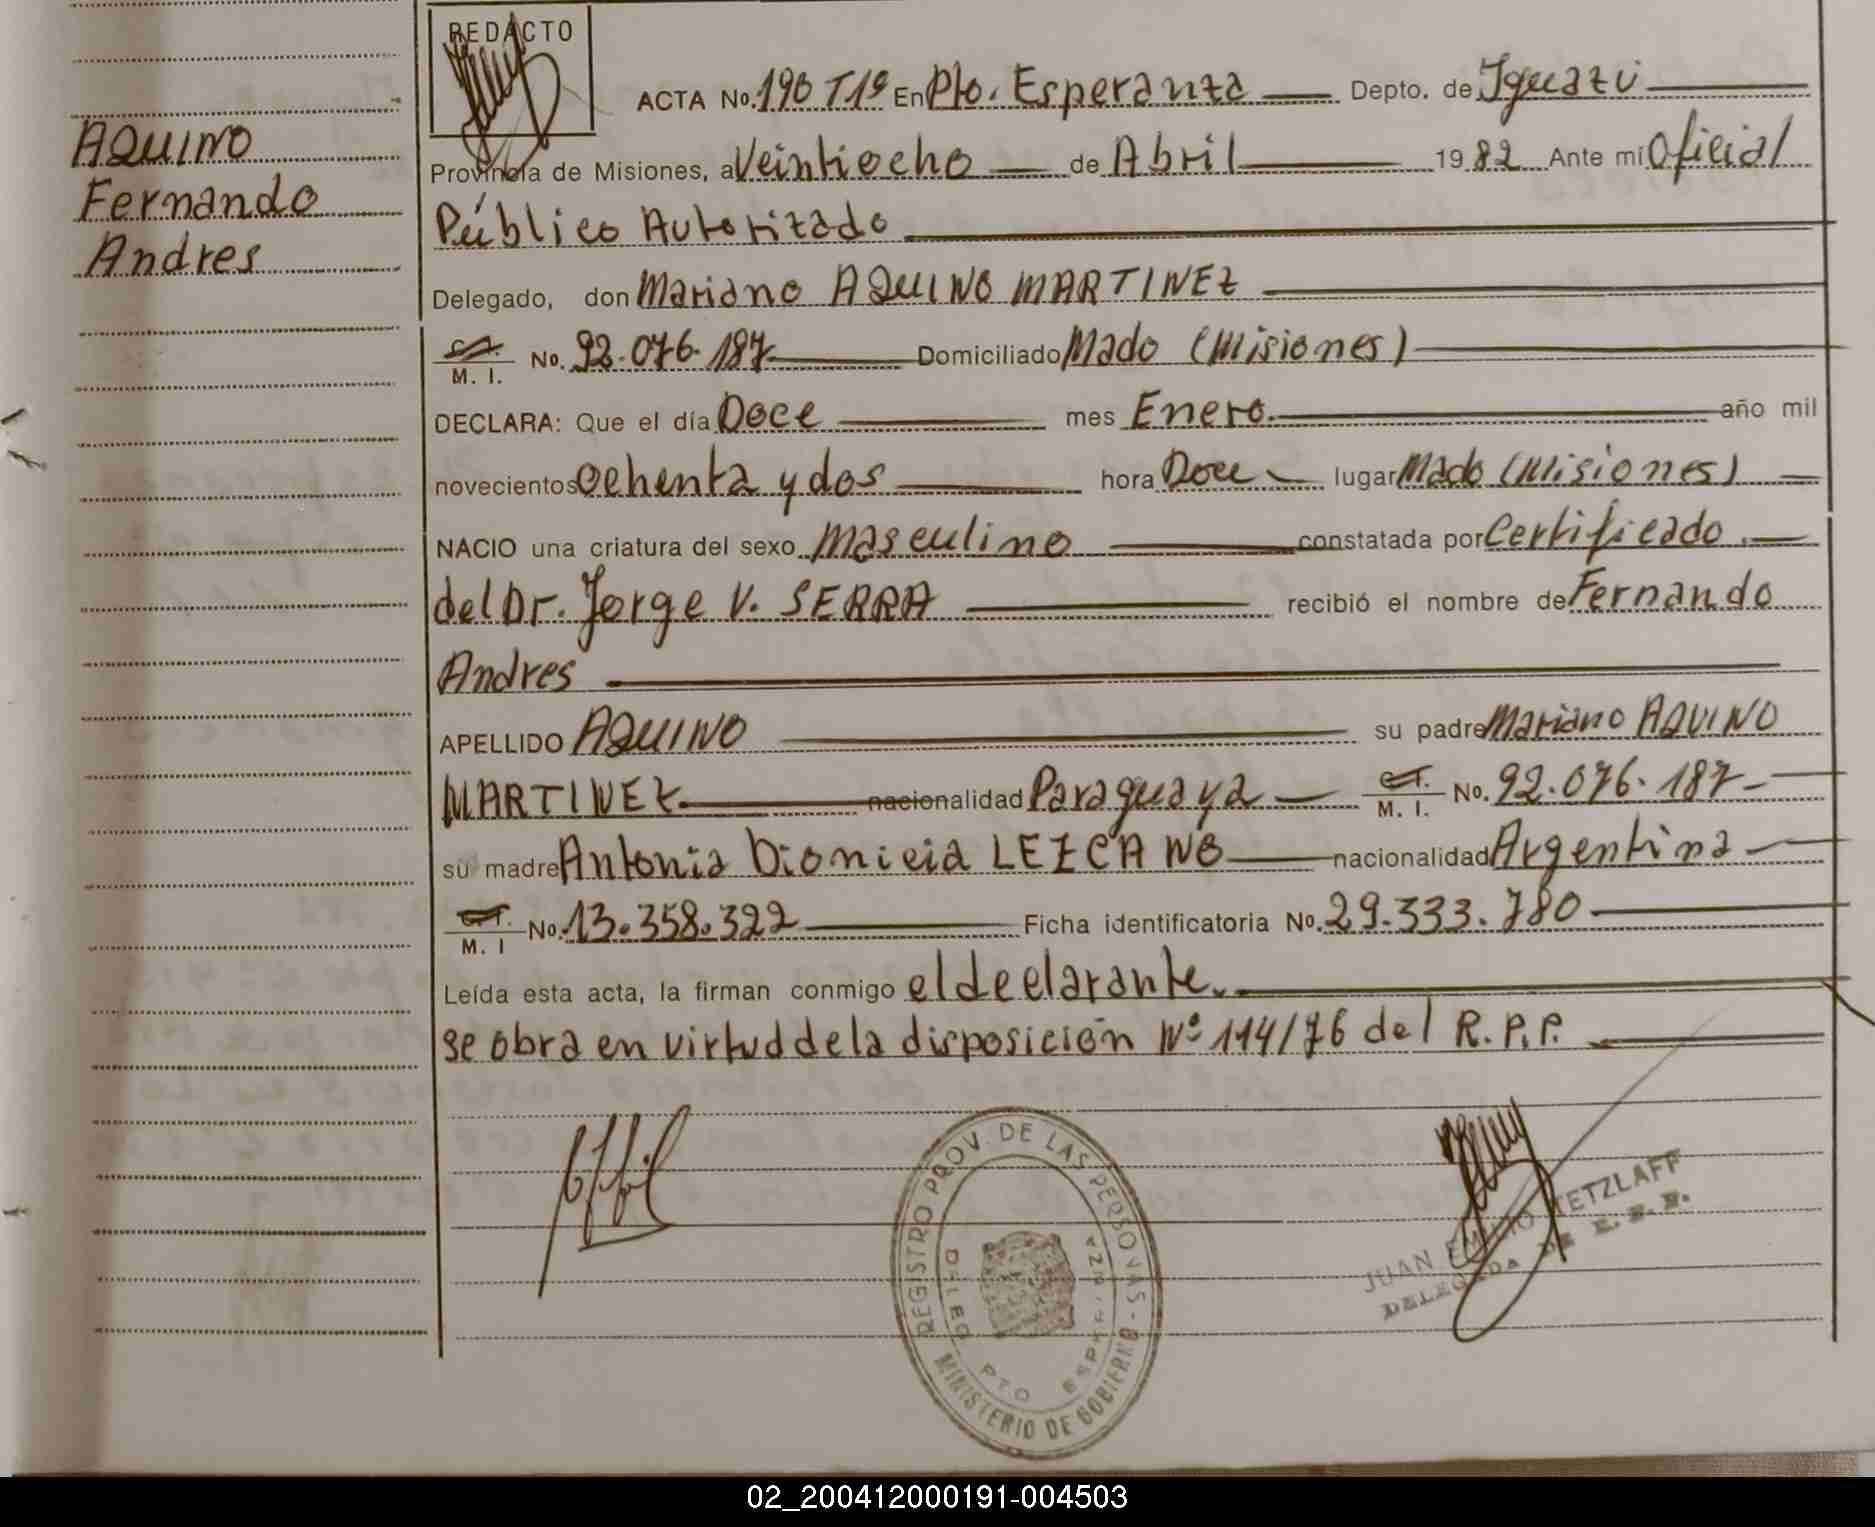 REDACTO
ACTA No. 190 T1º En Pto. Esperanza Depto. de Iguazú
AQUINO
Fernando
Andres
Provincia de Misiones, a Veintiocho de Abril 1982 Ante mí Oficial
Público Autorizado
Delegado, don Mariano AQUINO MARTINEZ
C.I. M. I. No. 92.076.187 Domiciliado Mado (Misiones)
DECLARA: Que el día Doce mes Enero. año mil
novecientos Ochenta y dos hora Doce lugar Mado (Misiones)
NACIO una criatura del sexo Masculino constatada por Certificado
del Dr. Jorge V. SERRA recibió el nombre de Fernando
Andres
APELLIDO AQUINO su padre Mariano AQUINO
MARTINEZ nacionalidad Paraguaya C.I. M. I. No. 92.076.187
su madre Antonia Dionicia LEZCANO nacionalidad Argentina
C.I. M. I No. 13.358.322 Ficha identificatoria No. 29.333.780
Leída esta acta, la firman conmigo el declarante.
se obra en virtud de la disposición Nº 114/76 del R.P.P.
REGISTRO PROV. DE LAS PERSONAS - MINISTERIO DE GOBIERNO
DELEG PTO ESPERANZA
JUAN EMILIO TETZLAFF
DELEGADA DE
02_200412000191-004503